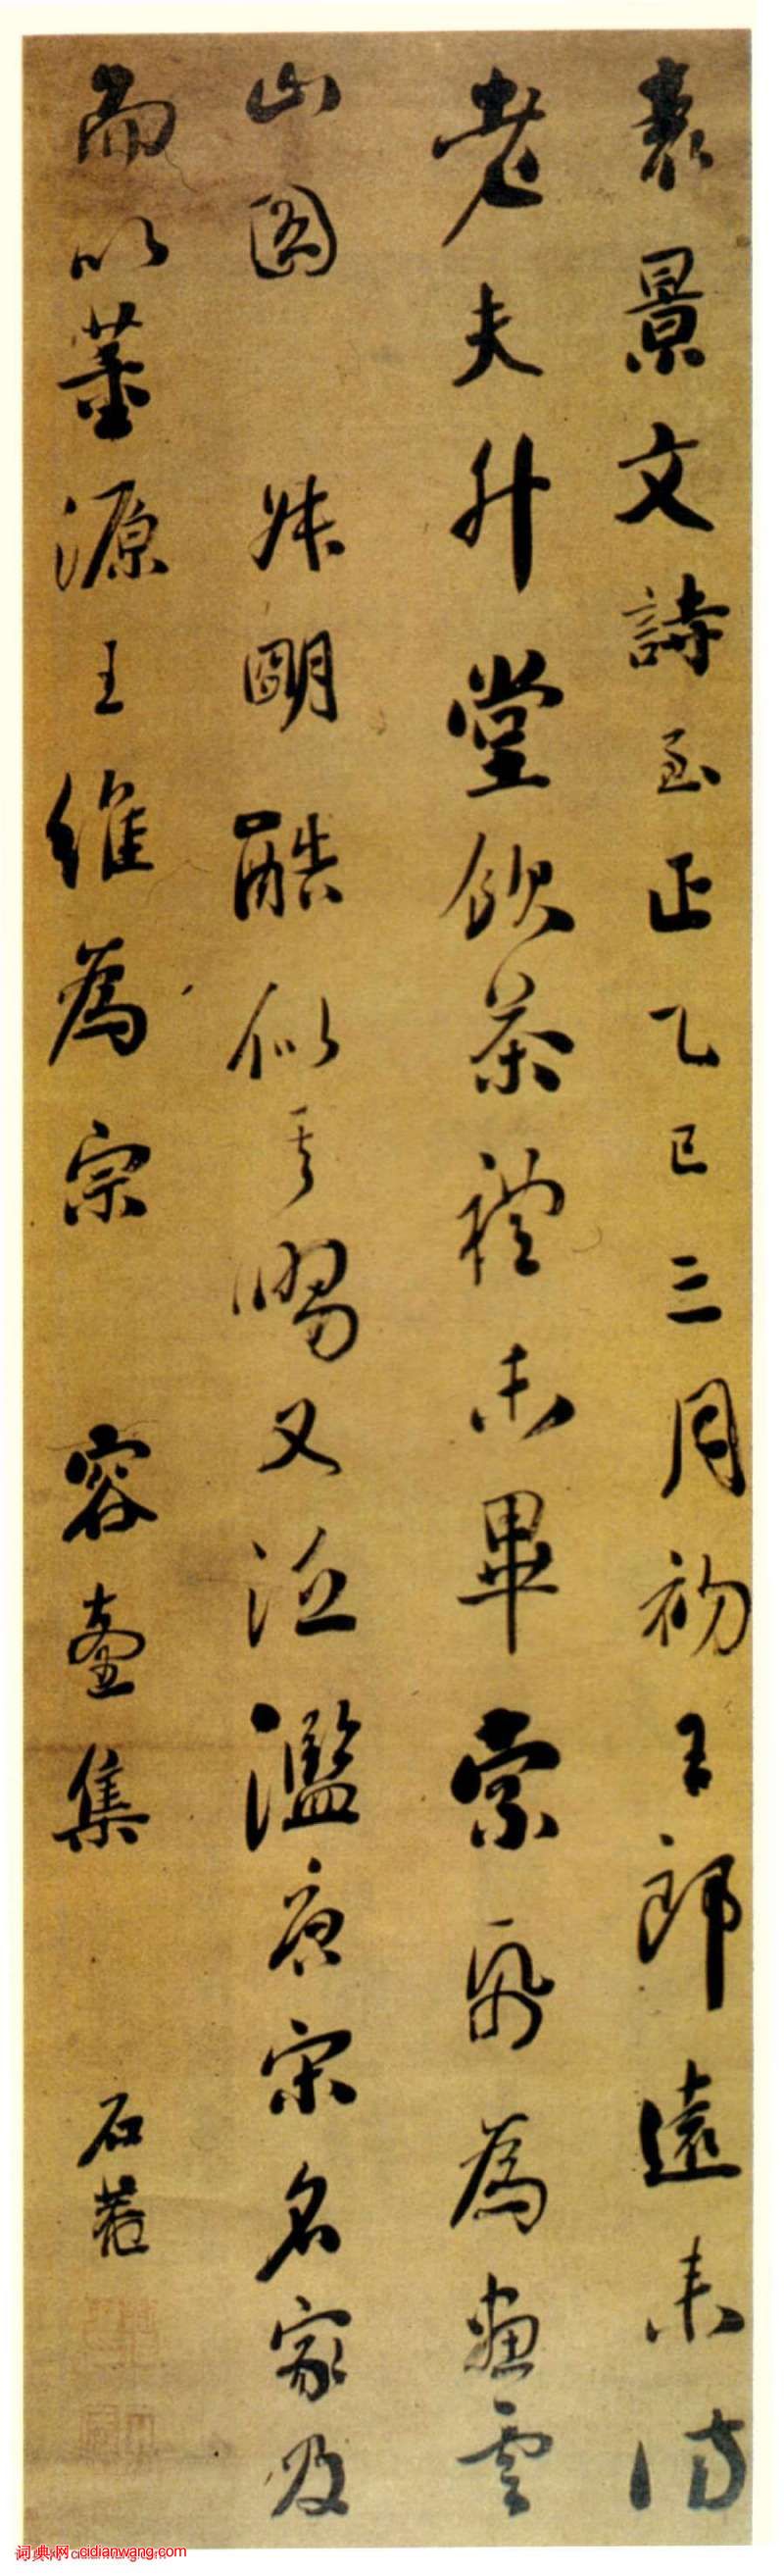 袁景文詩至正乙巳三月初王郎遠来訪
老夫升堂飲茶禮未畢索紙為畫雲
山圖 叔明酷似其舅又泛濫唐宋名家及
而以董源王維為宗 容臺集 石菴
词典网:cidianwang.com